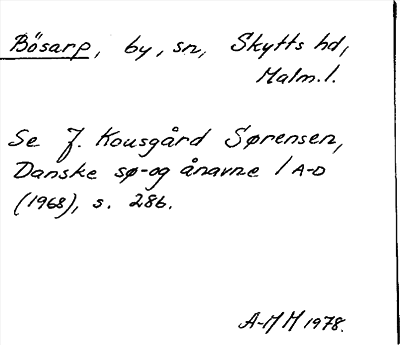 Bösarp, by, sn, Skytts hd,
Malm.l.
Se J. Kousgård Sørensen,
Danske sø- og ånavne 1 A-D
(1968), s. 286.
A-M H 1978.